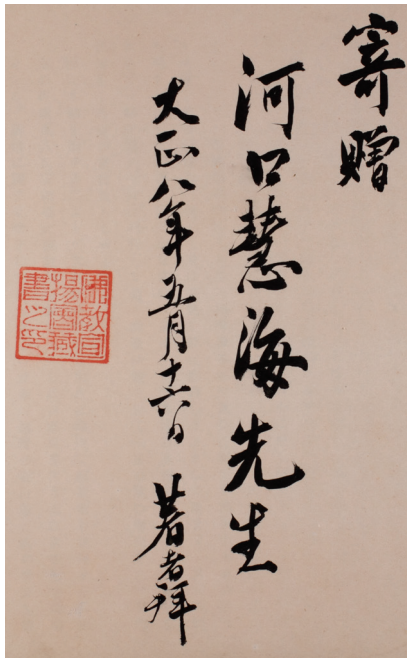 寄贈
河口慧海先生
大正八年五月十六日 著者拜
佛教宣
揚會藏
書之印